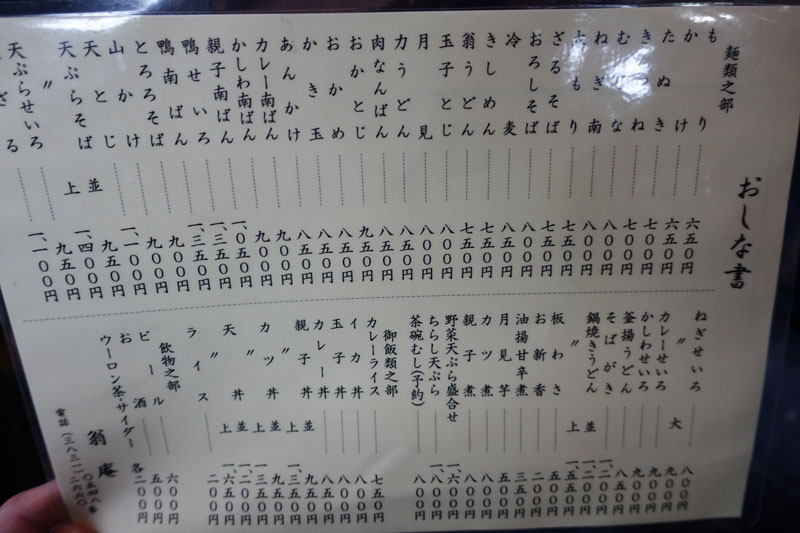 おしな書
麺類之部
もり 六五〇円
かけ 六五〇円
たぬき 七〇〇円
きつね 七〇〇円
むじな 八〇〇円
ねぎ南 八〇〇円
大もり 七五〇円
ざるそば 七五〇円
おろしそば 八五〇円
冷麦 八五〇円
きしめん 七五〇円
翁うどん 七五〇円
玉子とじ 八〇〇円
月見 八〇〇円
力うどん 八五〇円
肉なんばん 八五〇円
おかとじ 九五〇円
おかめ 八五〇円
かき玉 八五〇円
あんかけ 八五〇円
カレー南ばん 九〇〇円
かしわ南ばん 九〇〇円
親子南ばん 一、〇五〇円
鴨せいろ 一、三五〇円
鴨南ばん 一、三五〇円
とろろそば 九〇〇円
山かけ 九〇〇円
天とじ 一、一〇〇円
天ぷらそば 並 九五〇円
〃 上 一、四〇〇円
天ぷらせいろ 九五〇円
ざる 一、一〇〇円
ねぎせいろ 八〇〇円
〃 大 九〇〇円
カレーせいろ 九〇〇円
かしわせいろ 九〇〇円
釜揚うどん 八五〇円
そばがき 一、一〇〇円
鍋焼きうどん 並 一、一〇〇円
上 一、五五〇円
板わさ 五〇〇円
お新香 二〇〇円
油揚甘辛煮 三五〇円
月見芋 五五〇円
カツ煮 八〇〇円
親子煮 八〇〇円
野菜天ぷら盛合せ 一、六〇〇円
ちらし天ぷら 一、八〇〇円
茶碗むし(予約) 八〇〇円
御飯類之部
カレーライス 七五〇円
イカ丼 八〇〇円
玉子丼 八五〇円
カレー丼 九五〇円
親子丼 並 九五〇円
〃 上 一、三五〇円
カツ丼 並 九五〇円
〃 上 一、三五〇円
天丼 並 一、二〇〇円
〃 上 一、六五〇円
ライス 二〇〇円
飲物之部
ビール 六〇〇円
お酒 五〇〇円
ウーロン茶・サイダー 各二〇〇円
翁庵
電話(三八三一)二六六〇
〇五四八番